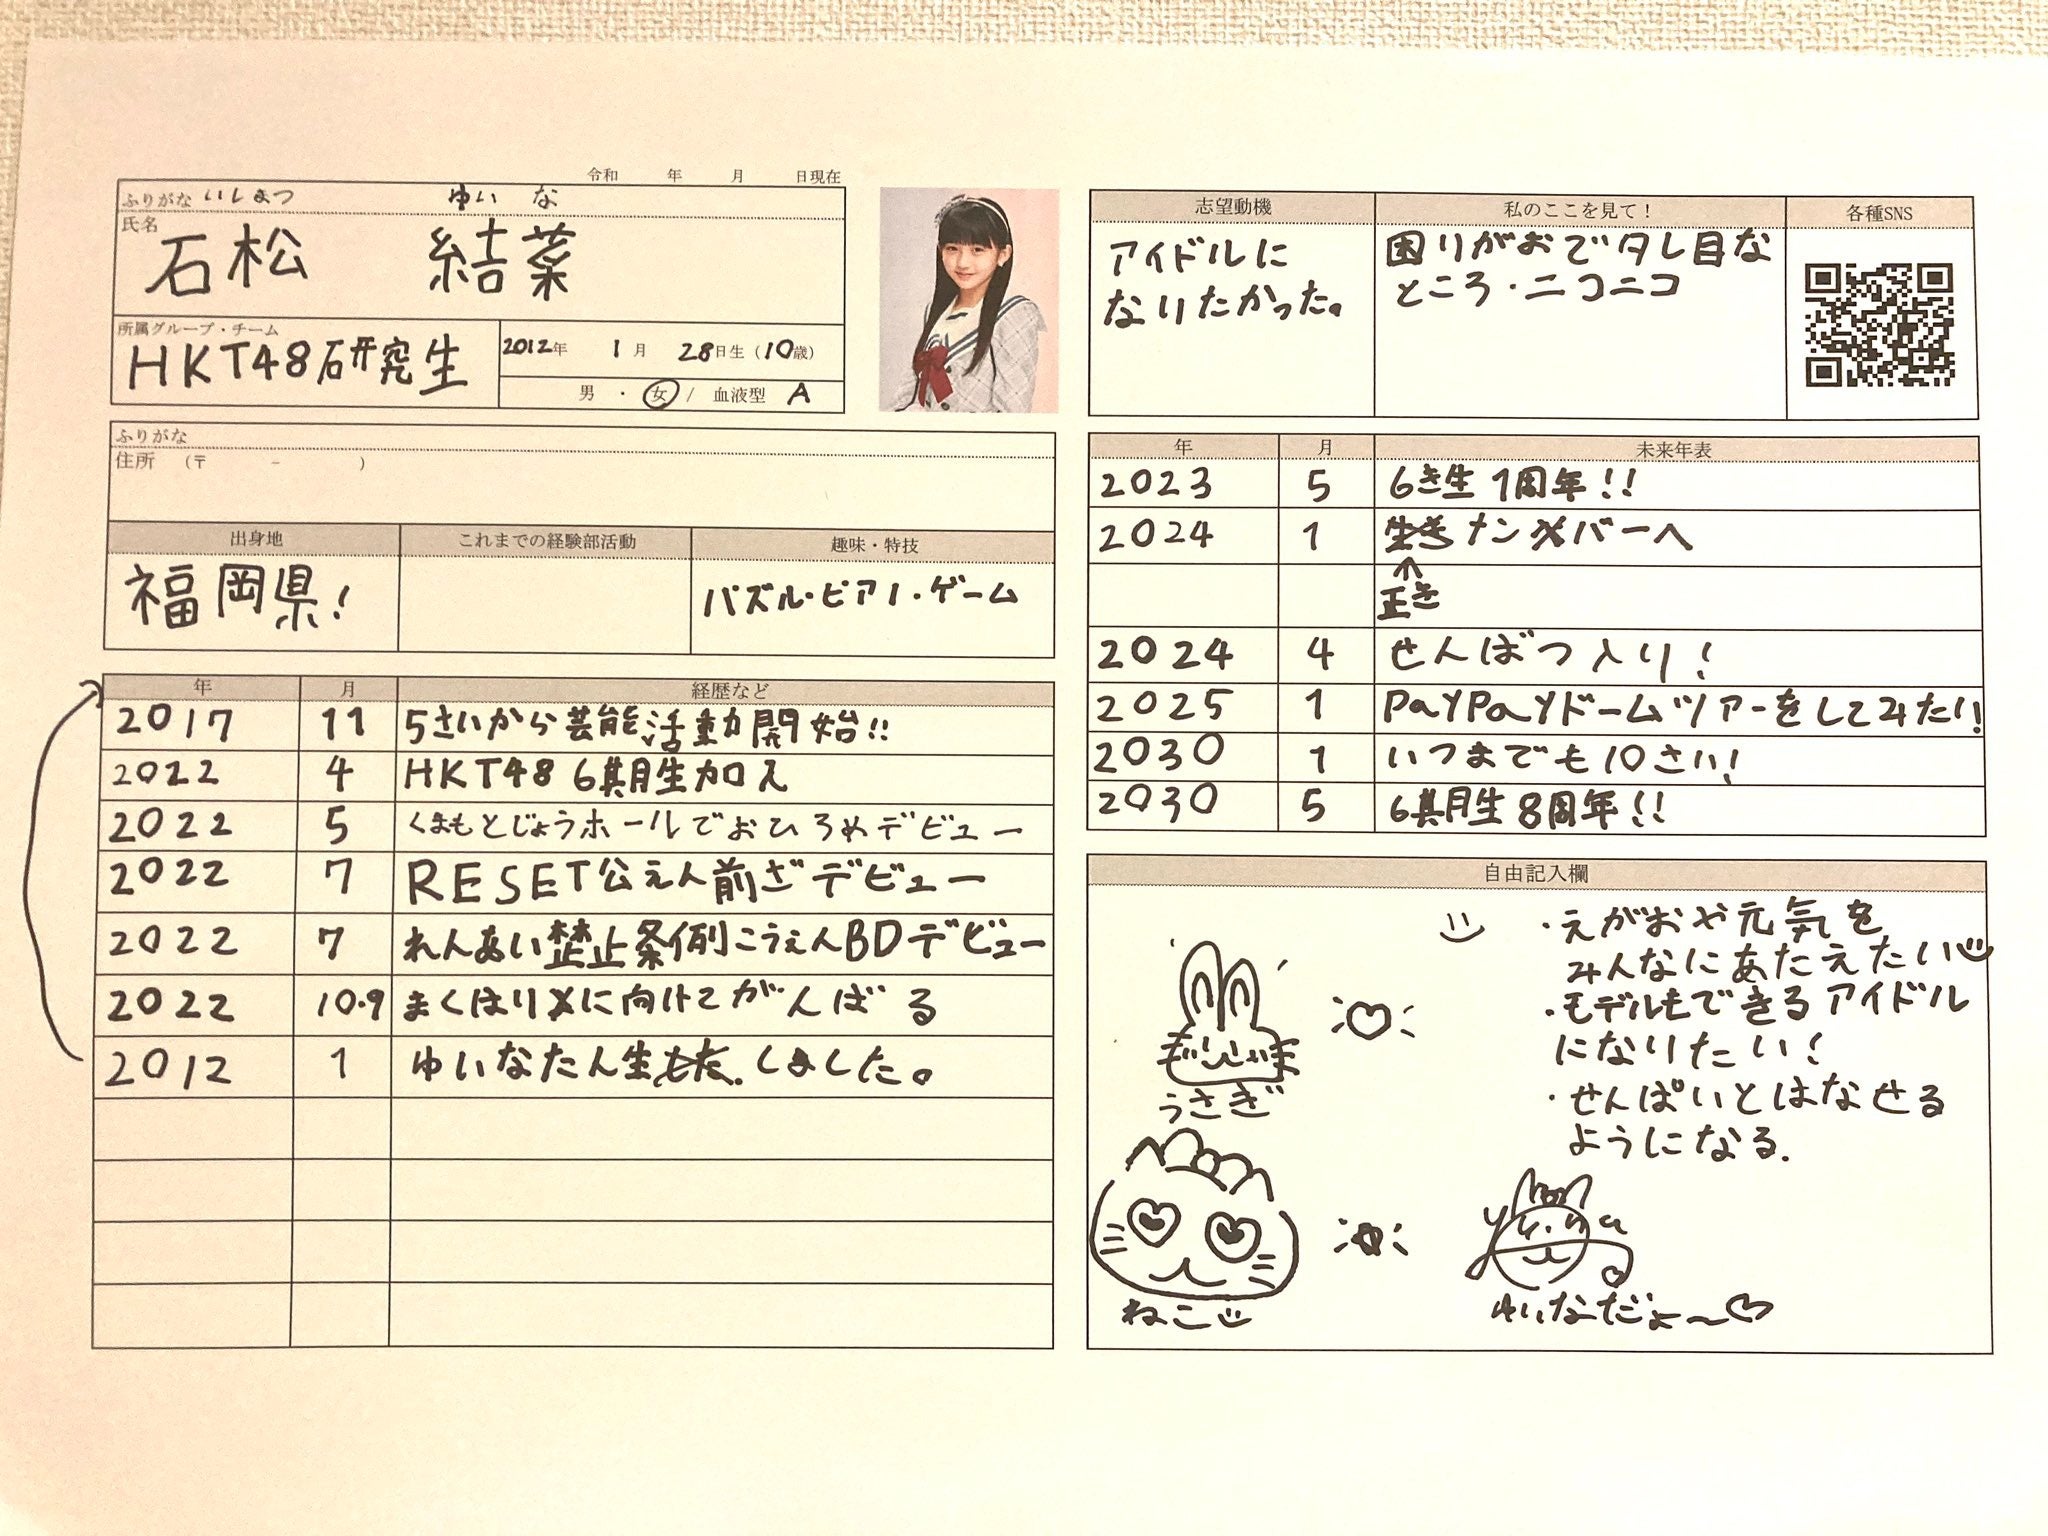 令和 年 月 日現在
ふりがな いしまつ ゆいな
氏名
石松 結菜
所属グループ・チーム
HKT48研究生
2012年 1月 28日生(10歳)
男・女/ 血液型 A
ふりがな
住所 (〒 - )
出身地 これまでの経験部活動 趣味・特技
福岡県! パズル・ピアノ・ゲーム
年 月 経歴など
2017 11 5さいから芸能活動開始!!
2022 4 HKT48 6期生加入
2022 5 くまもとじょうホールでおひろめデビュー
2022 7 RESET公えん前ざデビュー
2022 7 れんあい禁止条例こうえんBDデビュー
2022 10.9 まくはりに向けてがんばる
2012 1 ゆいなたん生しました。
志望動機 私のここを見て! 各種SNS
アイドルに
なりたかった。
困りがおでタレ目な
ところ・ニコニコ
年 月 未来年表
2023 5 6き生1周年!!
2024 1 ナンメバーへ
↑
正き
2024 4 せんばつ入り!
2025 1 PayPayドームツアーをしてみたい!
2030 1 いつまでも10さい!
2030 5 6期生8周年!!
自由記入欄
・えがおや元気を
みんなにあたえたい
・モデルもできるアイドル
になりたい!
・せんぱいとはなせる
ようになる.
うさぎ
ねこ
yuina
ゆいなだよ〜♡